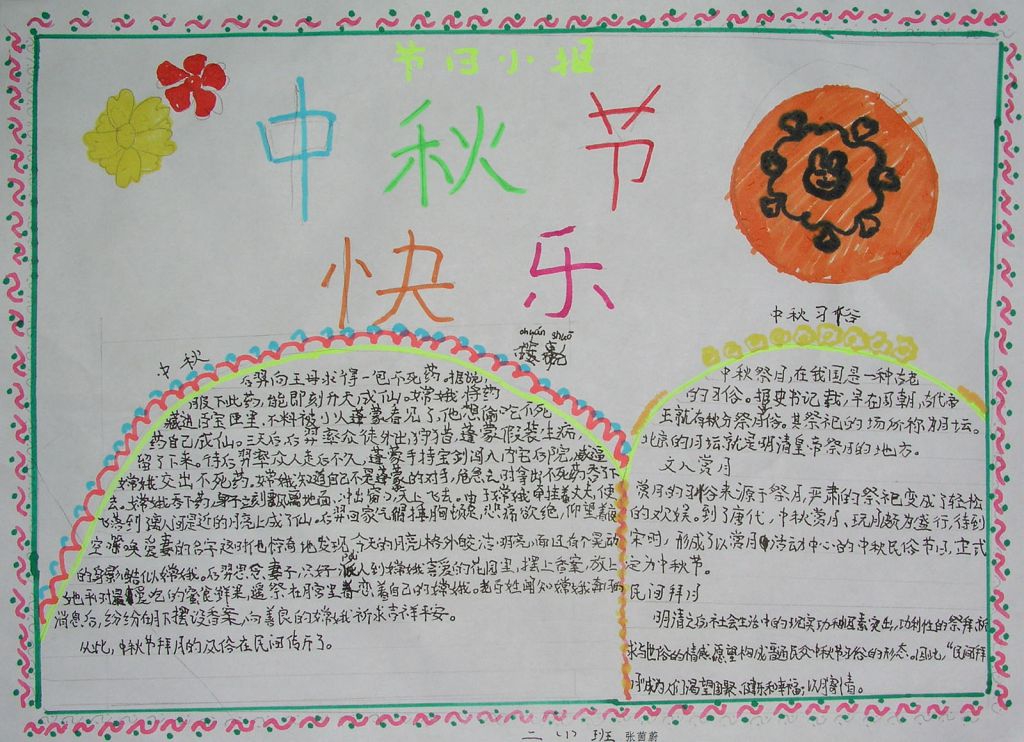 节日小报
中秋节
快乐
chuán shuō
中秋
后羿向王母求得一包不死药。据说,
服下此药,能即刻升天成仙。嫦娥将药
藏进百宝匣里,不料被小人蓬蒙看见了,他想偷吃不死
药自己成仙。三天后后羿率众徒外出狩猎,蓬蒙假装生病,
留了下来。待后羿率众人走后不久,蓬蒙手持宝剑闯入内宅后院,威逼
嫦娥交出不死药。嫦娥知道自己不是蓬蒙的对手,危急之时拿出不死药吞了下
去。嫦娥吞下药,身子立刻飘离地面、冲出窗口,向天上飞去。由于嫦娥牵挂着丈夫,便
飞落到离人间最近的月亮上成了仙。后羿回家气得捶胸顿足,悲痛欲绝,仰望着夜
空呼唤爱妻的名字这时他惊奇地发现,今天的月亮格外皎洁明亮,而且有个晃动
的身影酷似嫦娥。后羿思念妻子,只好派人到嫦娥喜爱的花园里,摆上香案,放上
她平时最爱吃的蜜食鲜果,遥祭在月宫里眷恋着自己的嫦娥。老百姓闻知嫦娥奔月
消息后,纷纷在月下摆设香案,向善良的嫦娥祈求吉祥平安。
从此,中秋节拜月的风俗在民间传开了。
中秋习俗
中秋祭月,在我国是一种古老
的习俗。据史书记载,早在周朝,古代帝
王就有秋分祭月俗。其祭祀的场所称为月坛。
北京的月坛就是明清皇帝祭月的地方。
文人赏月
赏月的习俗来源于祭月,严肃的祭祀变成了轻松
的欢娱。到了唐代,中秋赏月、玩月颇为盛行,待到
宋明,形成了以赏月活动中心的中秋民俗节日,正式
定为中秋节。
民间拜月
明清之后,社会生活中的现实功利因素突出,功利性的祭拜、祈
求与世俗的情感、愿望构成普通民众中秋节习俗的形态。因此,“民间拜
月”成为人们渴望团聚、康乐和幸福;以月寄情。
二(1)班 张茜蔚